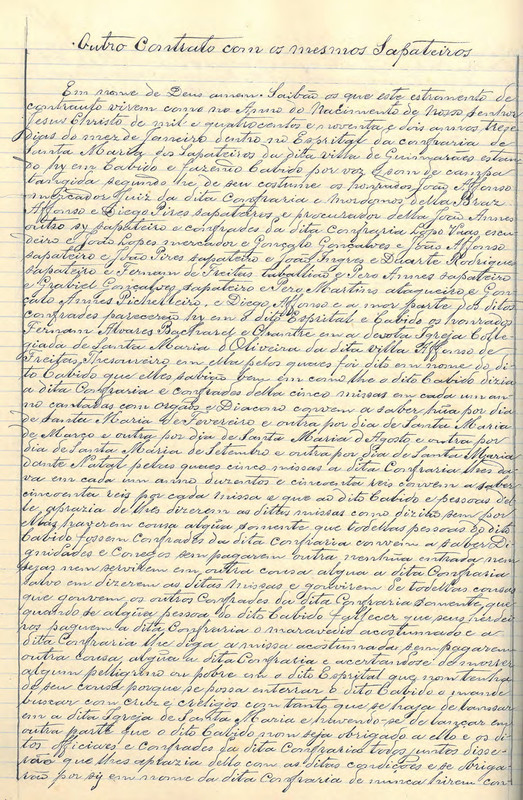 Outro Contrato com os mesmos Sapateiros
Em nome de Deus amen. Saibão os que este estromento de
contrauto virem como no Anno do Nacimento de Nosso Senhor
Jesus Christo de mil e quatrocentos e noventa e dois annos, treze
dias do mez de Janeiro dentro no Esprital da confraria de
Santa Maria dos Sapateiros da dita villa de Guimaraes estan
do hy em Cabido e fazendo Cabido por voz e som de campa
tangida segundo he de seu costume os honrados João Affonso
mercador Juiz da dita Confraria e mordomos della Braz
Affonso e Diego Pires sapateiros, e procurador della João Annes
outro sy sapateiro e confrades da dita Confraria Lopo Vaas, escu
deiro e João Lopes mercador e Gonçalo Gonçalves e João Affonso
sapateiro e João Pires sapateiro e João Ingres e Duarte Rodrigues
sapateiro e Fernam de Freitas, tabaliao e Pero Annes sapateiro
e Grabiel Gonçalves, sapateiro e Pero Martins ataqueiro e Gon
çalo Annes Picheleiro, e Diego Affonso e a mor parte dos ditos
confrades parecerão hy em o dito Espirital e Cabido os honrados
Fernam Alvares Bacharel e Chantre em a devota Igreja Colle
giada de Santa Maria d'Oliveira da dita villa Affonso de
Freitas, Thesoureiro em ella pelos quaes foi dito em nome do di
to Cabido que elles sabião bem em como lhe o dito Cabido dizia
a dita Confraria e confrades della cinco missas em cada um an
no cantadas com orgãos e Diacono convem a saber hũa por dia
de Santa Maria de Fevereiro e outra por dia de Santa Maria
de Março e outra por dia de Santa Maria d'Agosto e outra por
dia de Santa Maria de Setembro e outra por dia de Santa Maria
dante Natal pelas quaes cinco missas a dita Confraria lhes da
va em cada um anno duzentos e cincoenta reis convem a saber
cincoenta reis por cada missa e que ao dito Cabido e pessoas del
le, aprazia de lhes dizerem as dittas missas como dizião sem por
ellas haverem cousa algũa somente que todellas pessoas do dito
Cabido fossem confrades da dita confraria convem a saber Di
gnidades e Conegos sem pagarem outra nenhũa entrada nem
jejas, nem servirem em outra cousa algũa a dita Confraria
salvo em dizerem as ditas missas e gouvirem de todellas cousas
que gouvem os outros Confrades da dita Confraria somente que
quando se algũa pessoa do dito Cabido fallecer que seus herdei
ros paguem a dita Confraria o maravedio acostumado e a
dita Confraria lhe diga a missa acostumada sem pagarem
outra cousa algũa a dita Confraria e acertandose de morrer
algum peligrino ou pobre em o dito Espirital que nom tenha
de seu cousa porque se possa enterrar o dito Cabido o mande
buscar com cruz e creligos com tanto que se haja de lanssar
em a dita Igreja de Santa Maria e havendo-se de lançar em
outra parte que o dito Cabido nom seja obrigado a ello e os di
tos officiaes e Confrades da dita Confraria todos juntos disse
rão que lhes aprazia dello com as ditas condições e se obriga
rão por sy em nome da dita Confraria de nunca hirem con